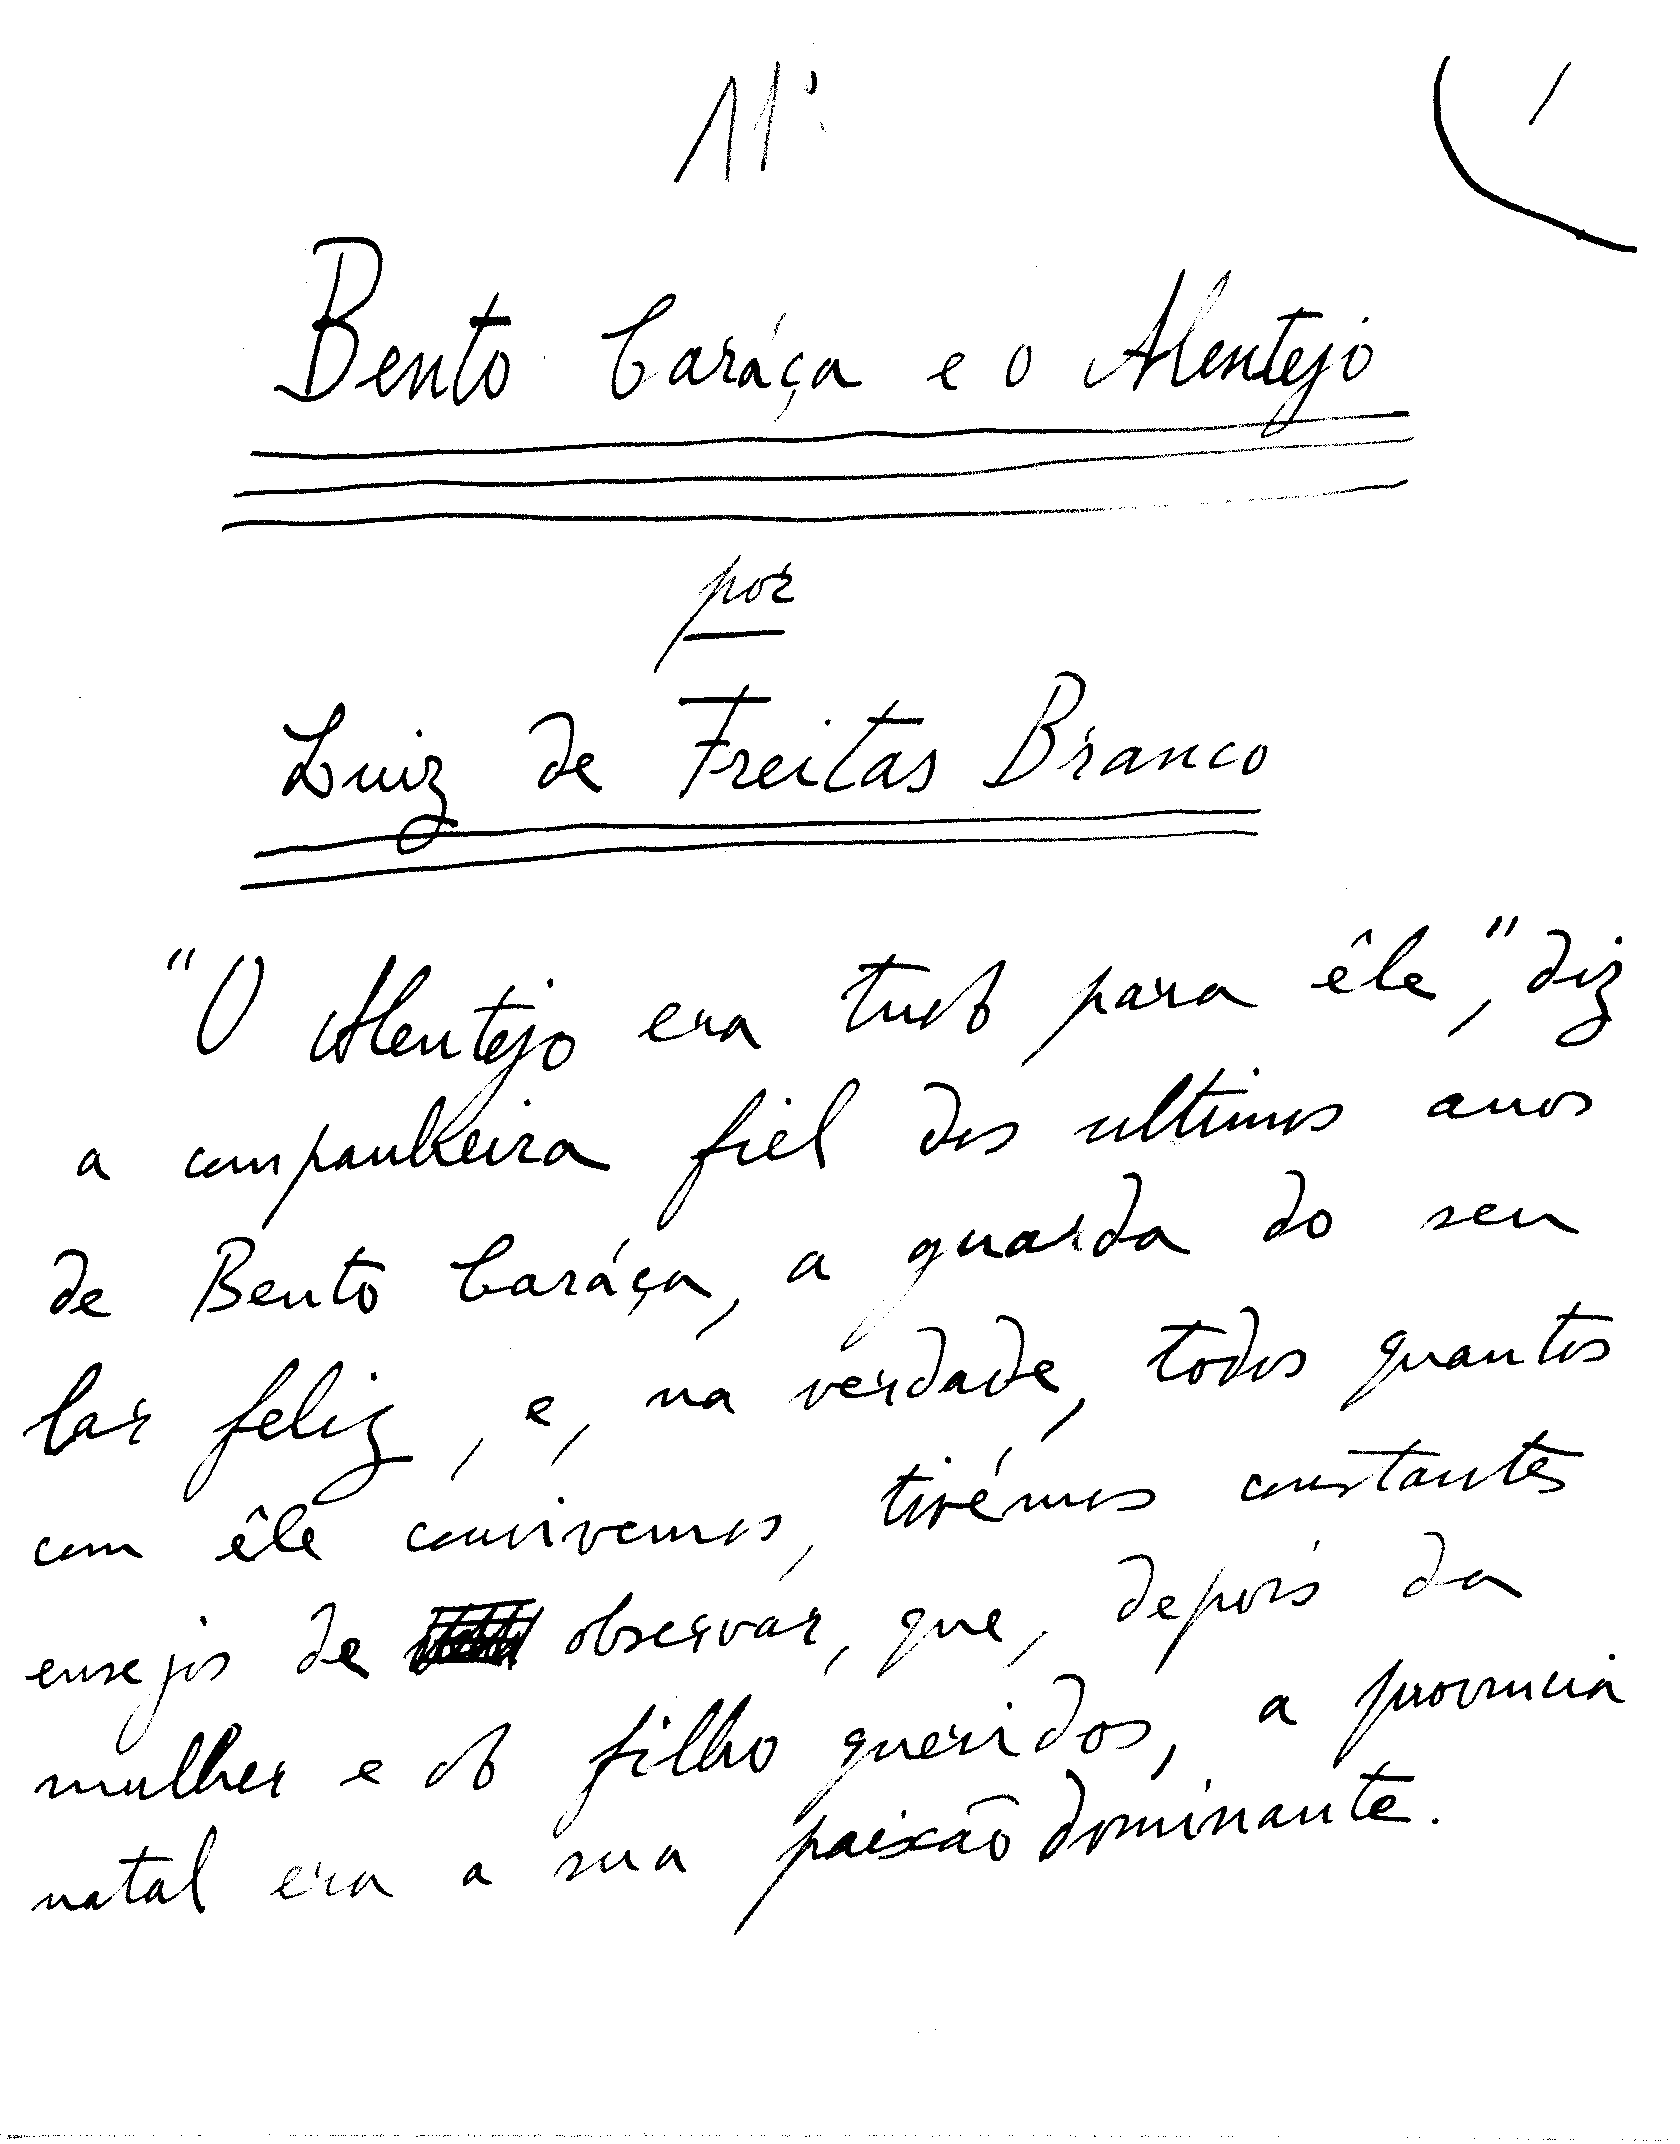 11º
1
Bento Caráça e o Alentejo
por
Luiz de Freitas Branco
"O Alentejo era tudo para êle," diz
a companheira fiel dos ultimos anos
de Bento Caráça, a guarda do seu
lar feliz, e, na verdade, todos quantos
com êle convivemos, tivémos constantes
ensejos de observar, que, depois da
mulher e do filho queridos, a provincia
natal era a sua paixão dominante.